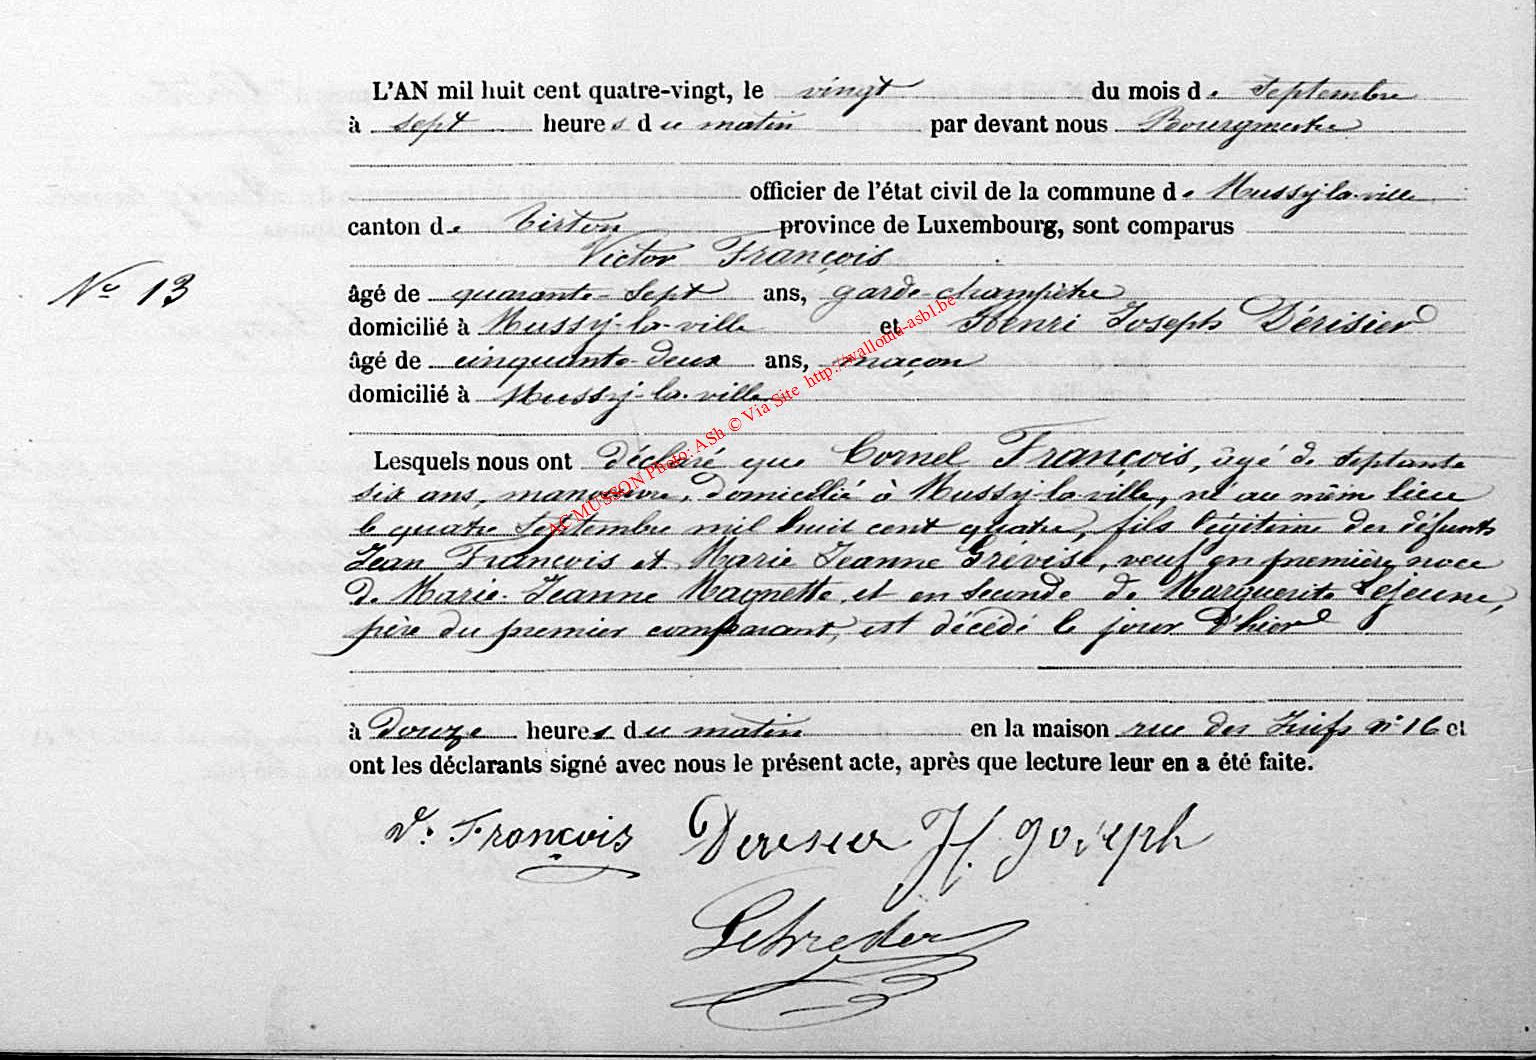 L'AN mil huit cent quatre-vingt, le vingt du mois de Septembre
à sept heures du matin par devant nous Bourgmestre
officier de l'état civil de la commune de Mussy-la-ville
canton de Virton province de Luxembourg, sont comparus
Victor François
No 13
âgé de quarante-sept ans, garde-champêtre
domicilié à Mussy-la-ville et Henri Joseph Dérisier
âgé de cinquante-deux ans, maçon
domicilié à Mussy-la-ville
AC MUSSON Photo: ASh © Via Site http://wallonia-asbl.be
Lesquels nous ont déclaré que Cornel François, âgé de septante
six ans, manœuvre, domicilié à Mussy-la-ville, né au même lieu
le quatre Septembre mil huit cent quatre, fils légitime des défunts
Jean François et Marie Jeanne Grévise, veuf en première noce
de Marie-Jeanne Magnette, et en seconde de Marguerite Lejeune,
père du premier comparant, est décédé le jour d'hier
à Douze heures du matin en la maison rue des Juifs n° 16 et
ont les déclarants signé avec nous le présent acte, après que lecture leur en a été faite.
V. François Deresier H. Joseph